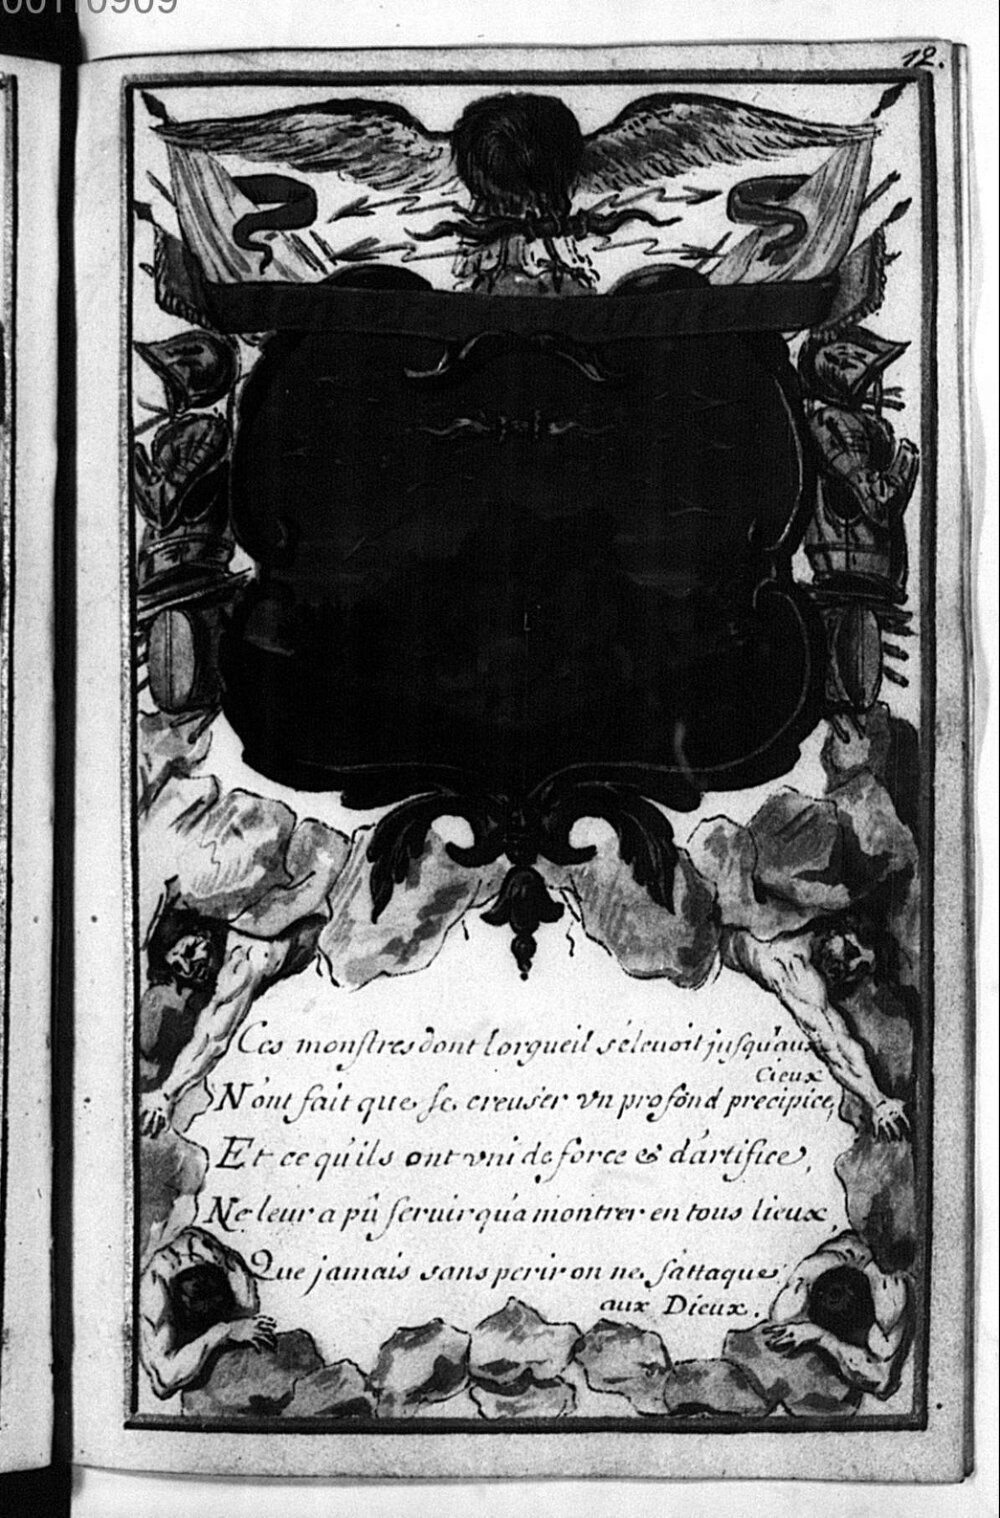 00110909
12.
Ces monstres dont lorgueil s'éleuoit jusqu'aux
Cieux
N'ont fait que se creuser vn profond precipice,
Et ce qu'ils ont vni de force & d'artifice,
Ne leur a pû seruir qu'a montrer en tous lieux,
Que jamais sans perir on ne s'attaque
aux Dieux.